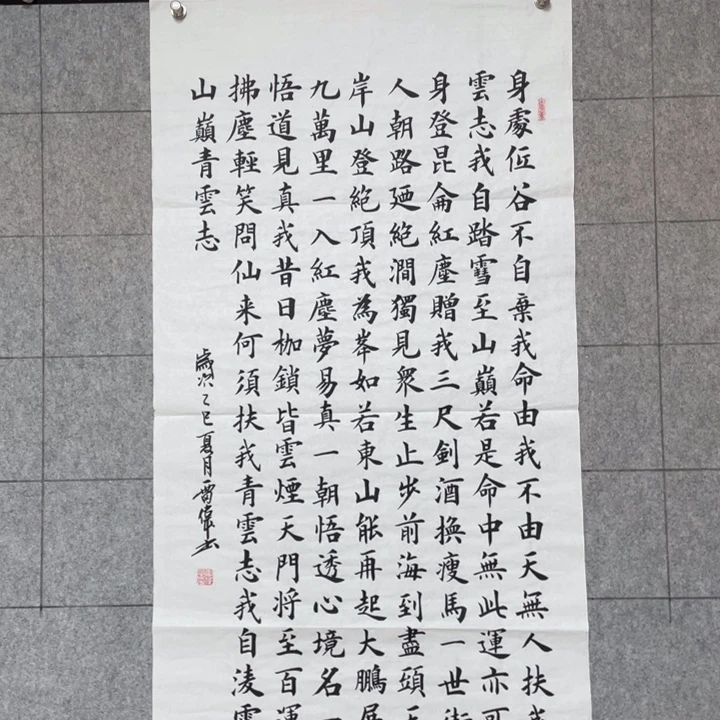 身處低谷不自棄我命由我不由天無人扶我
雲志我自踏雪至山巔若是命中無此運亦可
身登昆侖紅塵贈我三尺劍酒換瘦馬一世街
人朝路廼絶澗獨見眾生止步前海到盡頭天
岸山登絶頂我為峯如若東山能再起大鵬展
九萬里一入紅塵夢易真一朝悟透心境名一
悟道見真我昔日枷鎖皆雲煙天門將至百運
拂塵輕笑問仙来何須扶我青雲志我自淩雲
山巔青雲志
歲次乙巳夏月